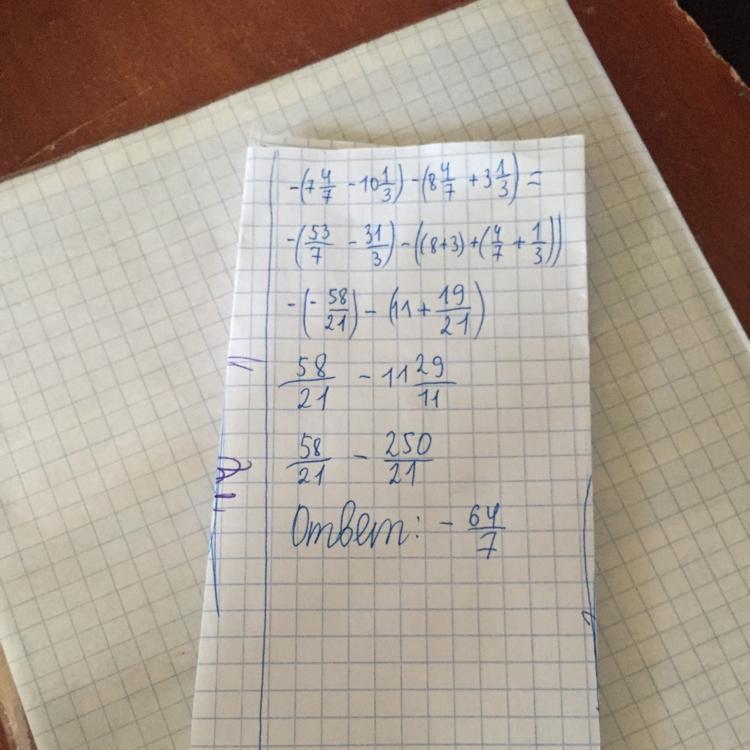 -(7 4/7 - 10 1/3) - (8 4/7 + 3 1/3) =
-(53/7 - 31/3) - ((8+3) + (4/7 + 1/3))
-(- 58/21) - (11 + 19/21)
58/21 - 11 29/11
58/21 - 250/21
Ответ: - 64/7